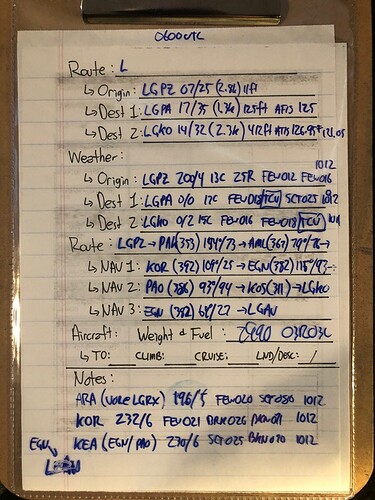 0600UTC
Route: L
↳ Origin: LGPZ 07/25 (2.8k) 11ft
↳ Dest 1: LGPA 17/35 (1.3k) 125ft ATIS 125
↳ Dest 2: LGKO 14/32 (2.3k) 412ft ATIS 121.05
Weather: 1012
↳ Origin: LGPZ 200/4 13C FEW012 FEW016
↳ Dest 1: LGPA 0/0 17C FEW018 TCU SCT025 1012
↳ Dest 2: LGKO 0/2 15C FEW016 FEW018 TCU
Route: LGPZ → (353) 194°/73 →
↳ NAV 1: KOR (392) 109°/25 → EGN (382) 115°/93 →
↳ NAV 2: PAO (386) 93°/94 → KOS (311) → LGKO
↳ NAV 3: EGN (382) LGAV
Aircraft: Weight & Fuel:
↳ TO: CLIMB: CRUISE: LND/DESC: /
Notes:
ARA (NORE LGRX) 196/5 FEW020 SCT080 1012
KOR 232/6 FEW021 1012
KEA (EGN/PAO) 230/6 SCT025 BKN070 1012
EGN